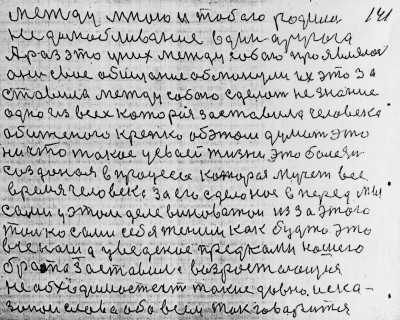 между мною и тобою родина 141
недолюбливание один другога
А раз это у них между собою проявлялося
они свое общание обманули их это за
ставила между собою сделат незнание
одно из всех которая заставила человека
обиженого крепко об этом думат это
ничто такое у в‌сей жизни это болезн
созданоя в процессе которая мучет все
время человека за его сделоное в перед мы
сами у этом деле виноватои из за этого
толко сами себя теним как будто это
все каша уведение предками нашего
брата заставила возростающия
необходимостеи такие давно иска-
за слова обо всем так говорится